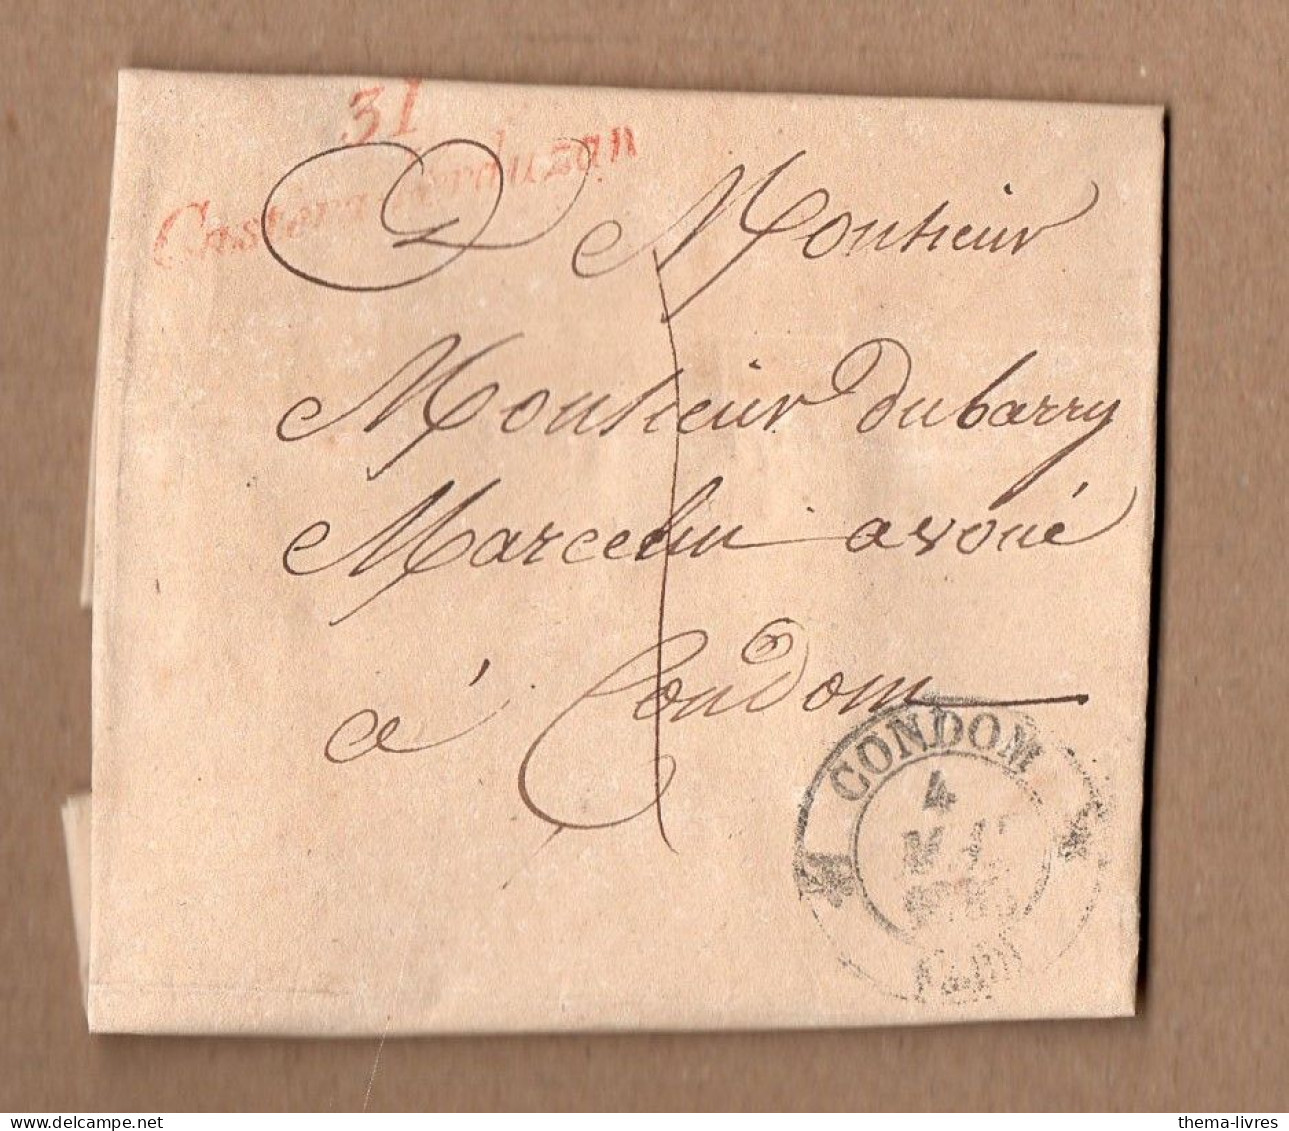 31
Castera Verduzan
A Monsieur
Monsieur Dubarry
Marcelin avoué
à Condom
CONDOM
4
MAI
thema-livres